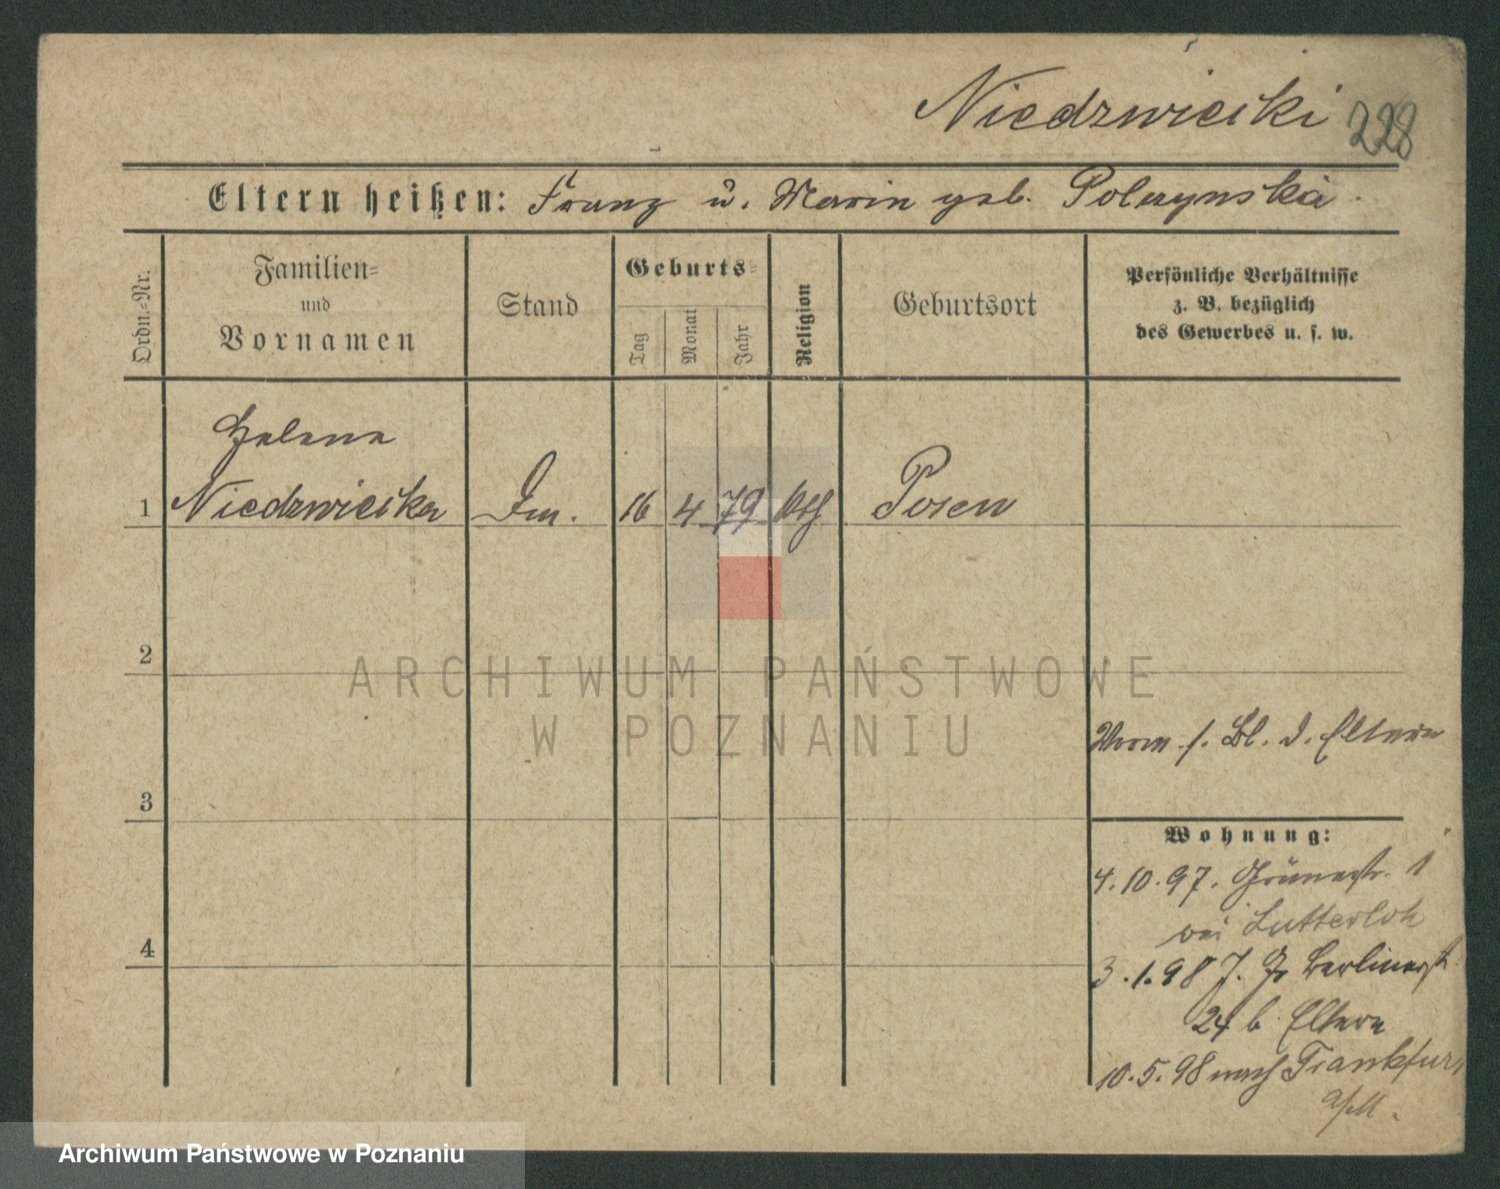 Niedzwiecki 228
Eltern heißen: Franz u. Marie geb. Polczynska
Ordn.-Nr.
Familien-
und
Vornamen
Stand
Geburts-
Tag
Monat
Jahr
Religion
Geburtsort
Persönliche Verhältnisse
z. B. bezüglich
des Gewerbes u. s. w.
Helene
1 Niedzwiecka 16 4 79 kth Posen
2
3
4
Vorm. s. Bl. d. Eltern
Wohnung:
4.10.97. Grünestr. 1
bei Lutterloh
3.1.98 J. Gr Berlinerst
24 b. Eltern
10.5.98 nach Frankfurt
a/M.
ARCHIWUM PAŃSTWOWE
W POZNANIU
Archiwum Państwowe w Poznaniu